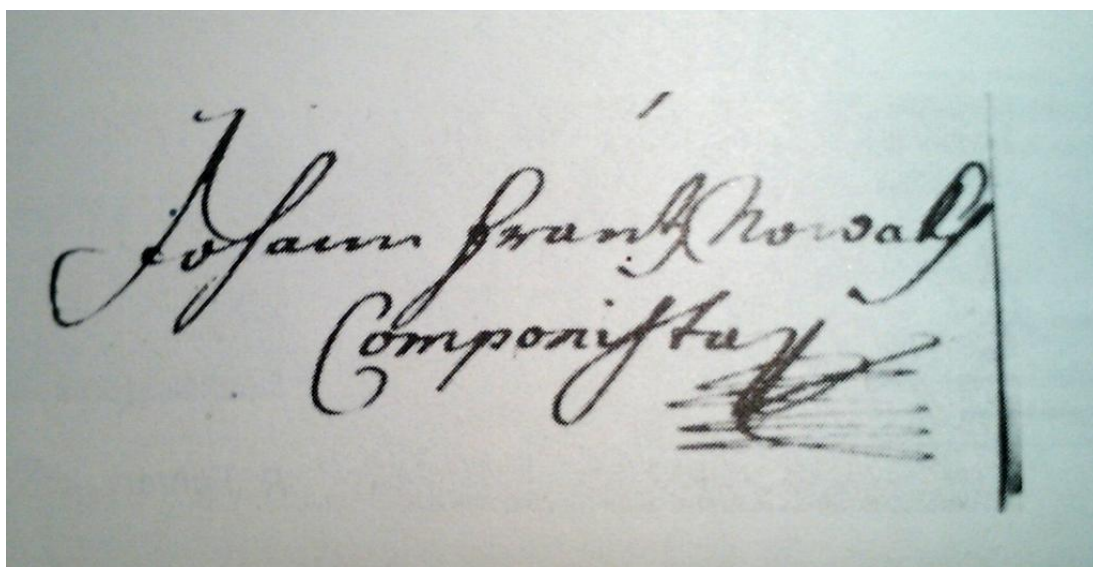 Johann Frantz Nowak
Componista